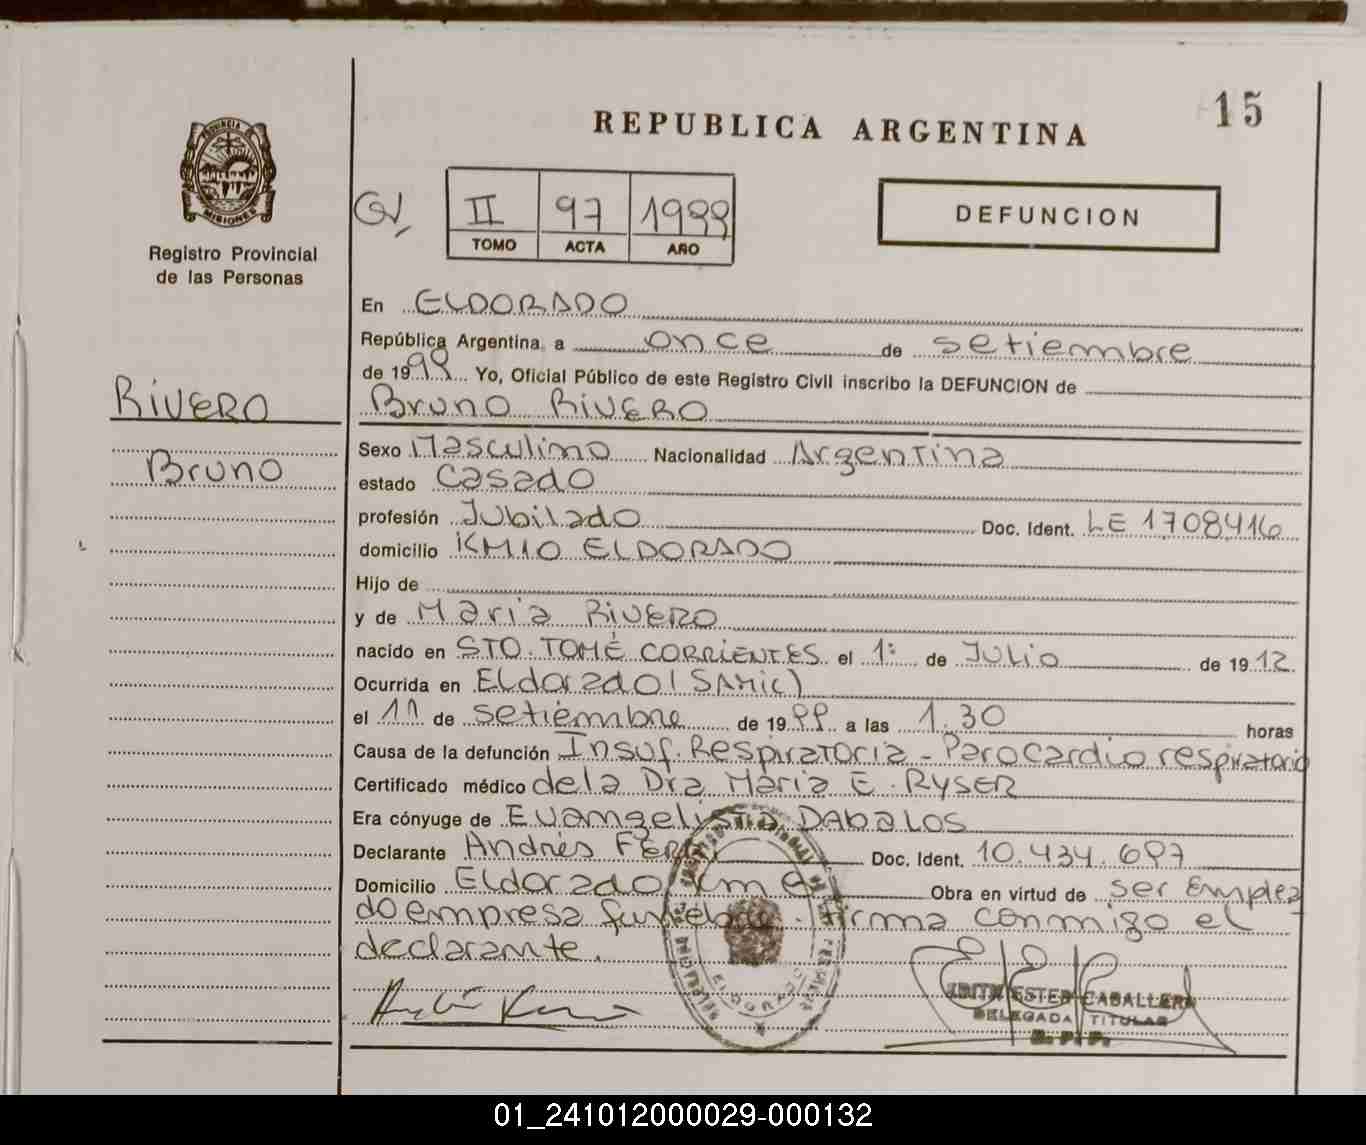 15
REPUBLICA ARGENTINA
PROVINCIA DE
MISIONES
Registro Provincial
de las Personas
II 97 1999
TOMO ACTA AÑO
DEFUNCION
RIVERO
Bruno
En ELDORADO
República Argentina, a once de setiembre
de 1999 Yo, Oficial Público de este Registro Civil inscribo la DEFUNCION de
Bruno RIVERO
Sexo Masculino Nacionalidad Argentina
estado Casado
profesión Jubilado Doc. Ident. LE 1708416
domicilio KM10 ELDORADO
Hijo de
y de Maria RIVERO
nacido en STO. TOMÉ CORRIENTES el 1º de Julio de 1912
Ocurrida en Eldorado (SAMIC)
el 11 de setiembre de 1999 a las 1.30 horas
Causa de la defunción Insuf. Respiratoria - Paro Cardio respiratorio
Certificado médico de la Dra Maria E. RYSER
Era cónyuge de Evangelista DABALOS
Declarante Andrés Doc. Ident. 10.434.697
Domicilio Eldorado Km Obra en virtud de ser Emplea
do empresa funebre. firma conmigo el
declarante.
EDITH ESTER CABALLERO
DELEGADA TITULAR
R. P. P.
ELDORADO
01_241012000029-000132